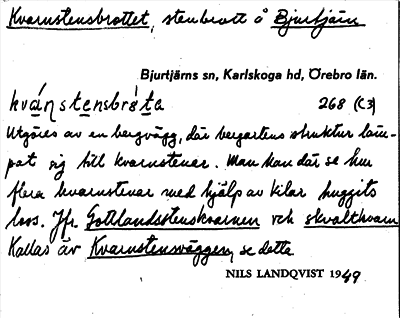 Kvarnstensbrottet, stenbrott å Bjurtjärn
Bjurtjärns sn, Karlskoga hd, Örebro län.
kvánstensbròta 268 (C3)
Utgöres av en bergvägg, där bergartens struktur läm-
pat sig till kvarnstenar. Man kan där se hur
flera kvarnstenar med hjälp av kilar huggits
loss. Jfr. Gottlandsstenskvarnen och skvaltkvarn
Kallas äv Kvarnstensväggen, se detta
NILS LANDQVIST 1949